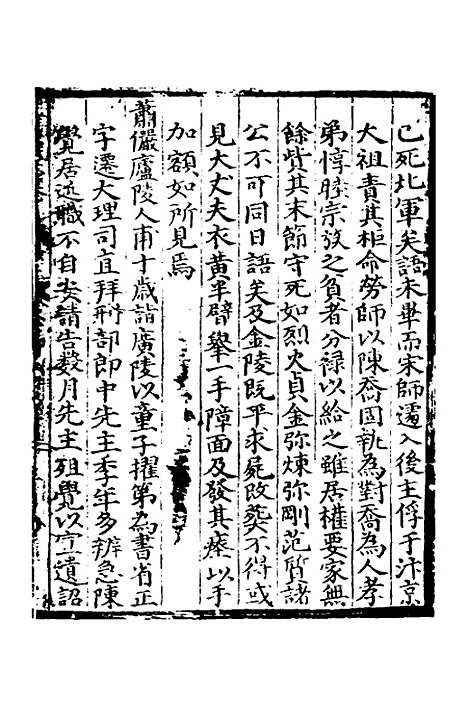 已死北軍矣語未畢而宋師遽入後主俘于汴京
大祖責其柜命勞師以陳喬固執為對喬為人孝
弟惇睦宗放之負者分禄以給之雖居權要家無
餘貲其末節守死如烈火貞金弥煉弥剛范質諸
公不可同日語矣及金陵既平求屍改葬不得或
見大丈夫衣黃半臂舉一手障面及發其瘞以手
加額如所見焉
蕭儼廬陵人甫十歲詣廣陵以童子擢第為書省正
字遷大理司直拜刑部郎中先主季年多辨急陳
覺居近職不自安請告數月先主殂覺以宣遺詔